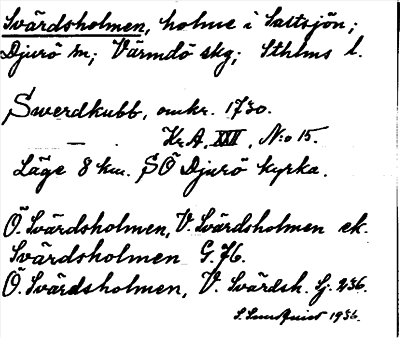 Svärdsholmen, holme i Saltsjön;
Djurö sn; Värmdö skg; Sthlms l.
Swerdkubb, omkr. 1730.
— Kr.A. XXI, N:o 15.
Läge 8 km. SÖ Djurö kyrka.
Ö. Svärdsholmen, V. Svärdsholmen ek.
Svärdsholmen G.76.
Ö. Svärdsholmen, V. Svärdsh. Sj. 236.
1936.